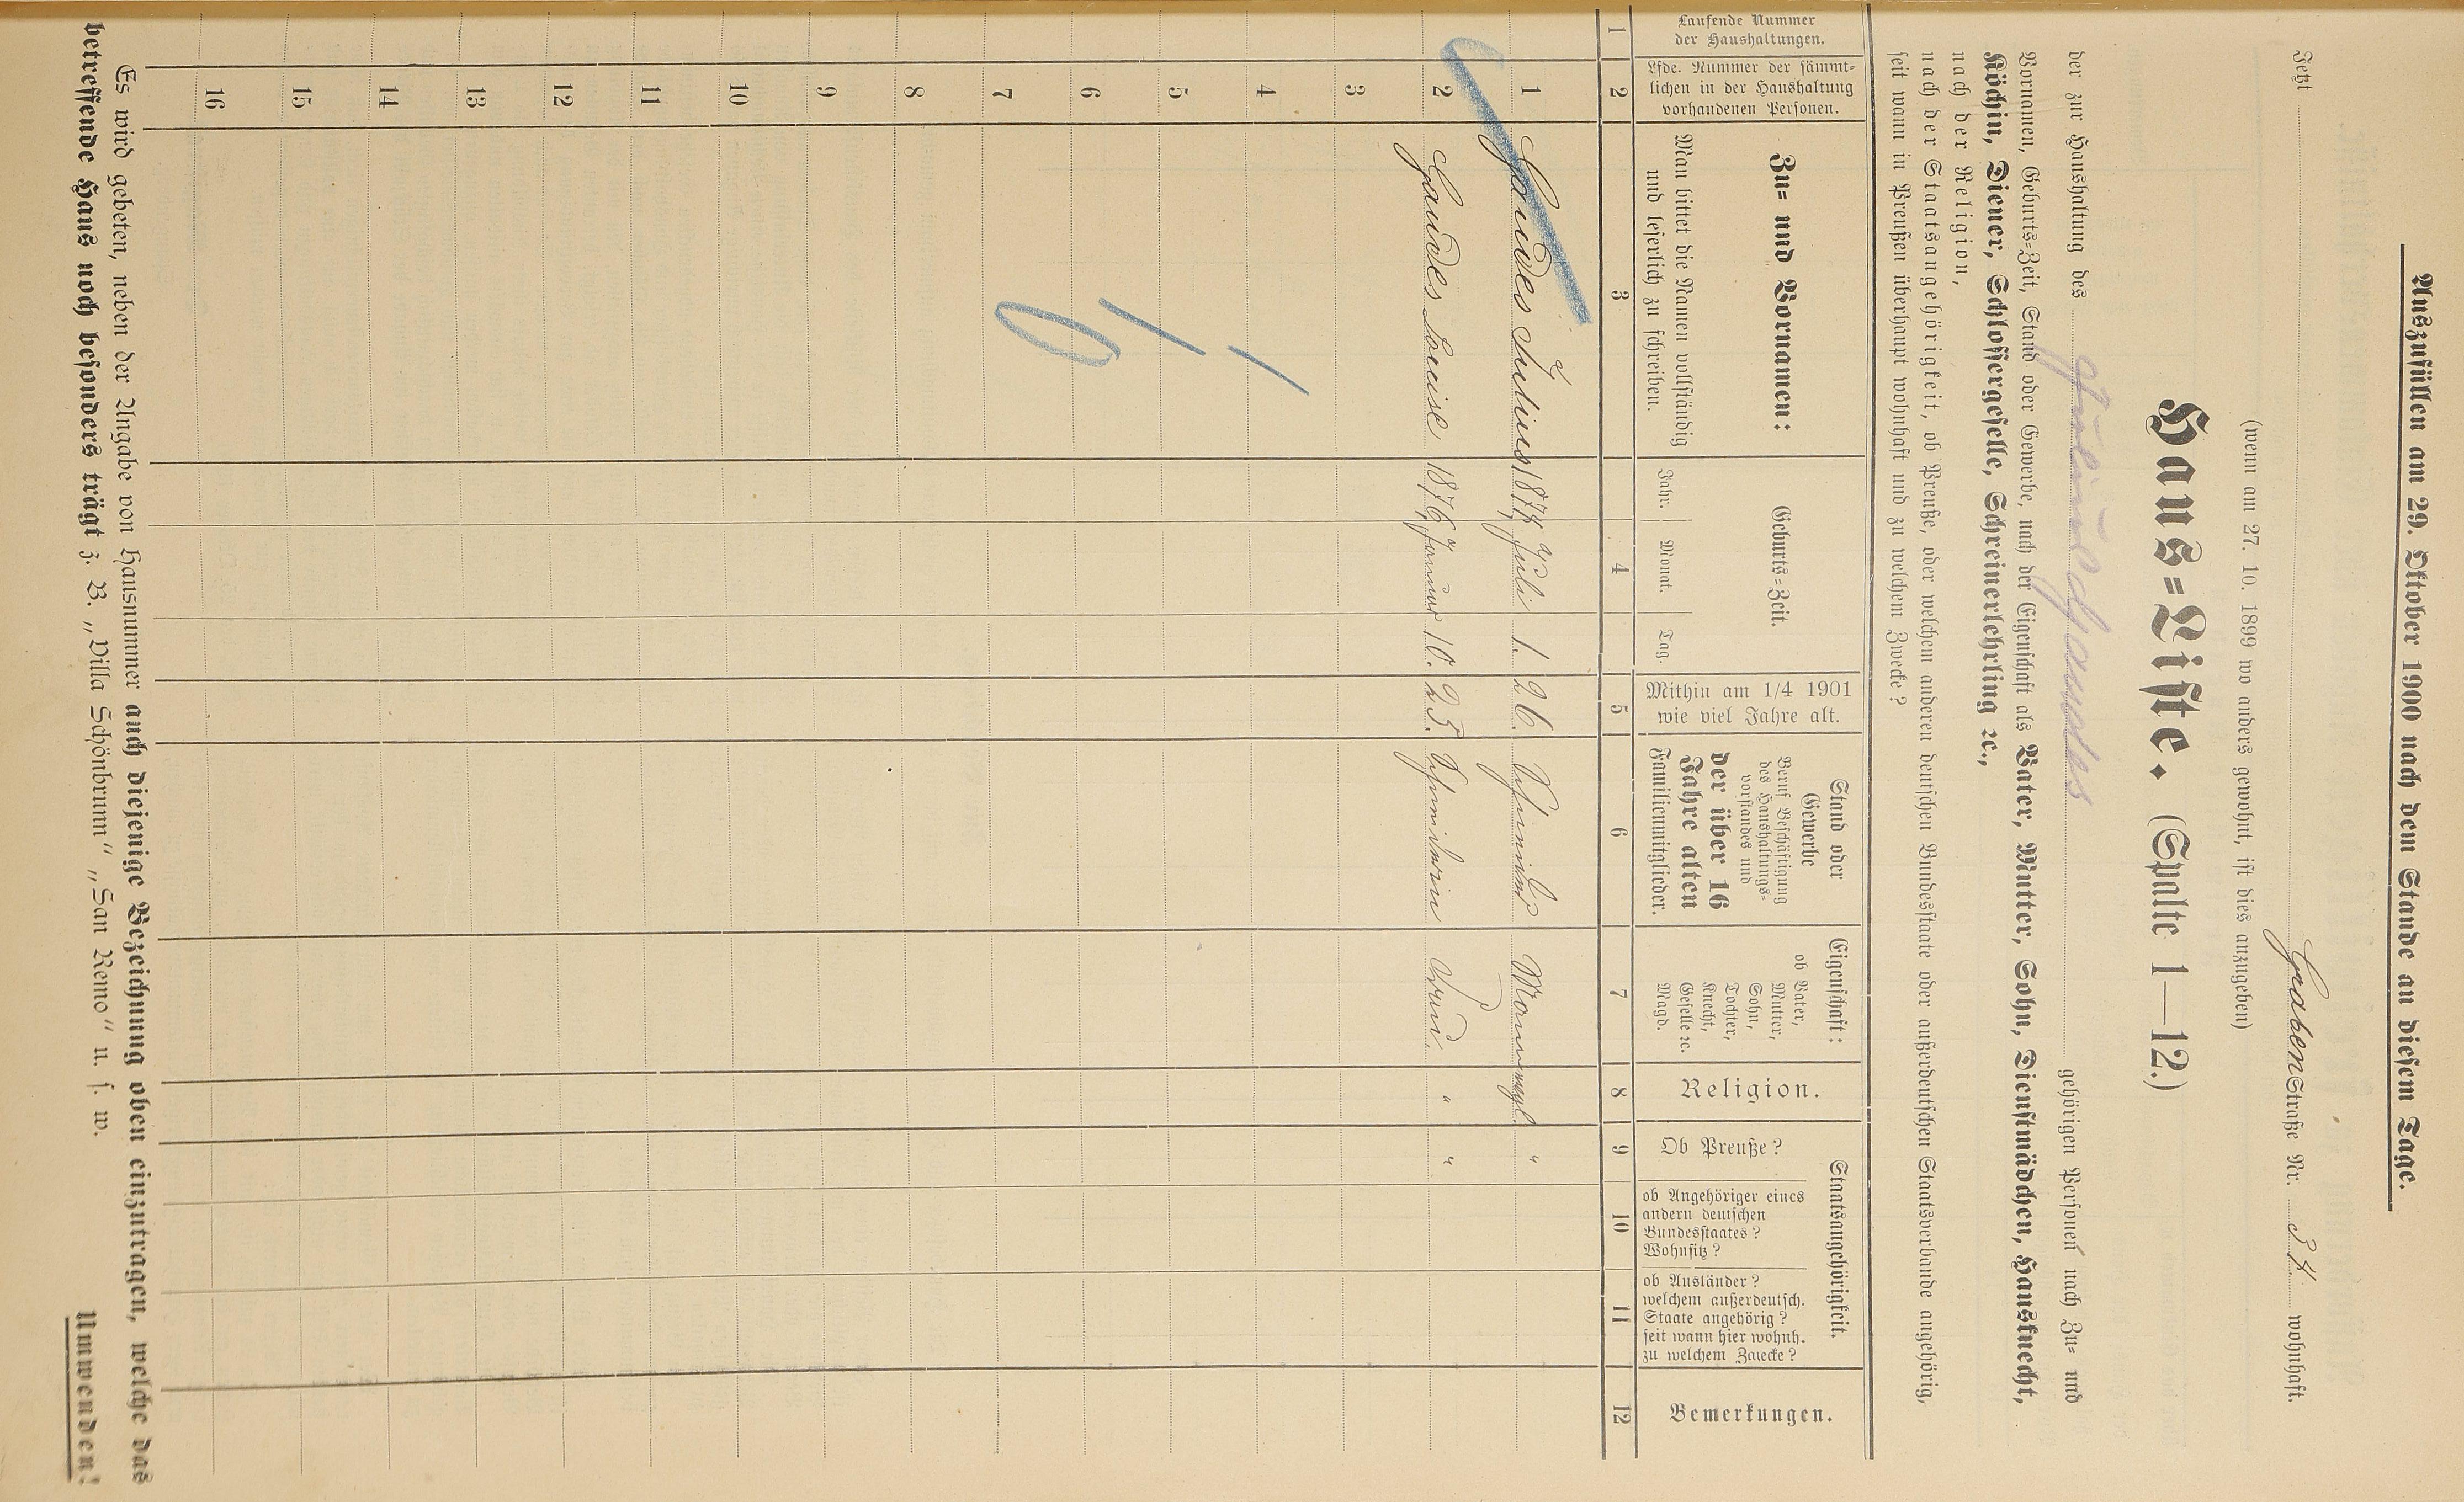 Auszufüllen am 29. Oktober 1900 nach dem Stande an diesem Tage.
Jetzt Graben Straße Nr. 34 wohnhaft.
(wenn am 27. 10. 1899 wo anders gewohnt, ist dies anzugeben)
Haus-Liste. (Spalte 1—12.)
der zur Haushaltung des Julius Gaudes gehörigen Personen nach Zu- und
Vornamen, Geburts-Zeit, Stand oder Gewerbe, nach der Eigenschaft als Vater, Mutter, Sohn, Dienstmädchen, Hausknecht,
Köchin, Diener, Schlossergeselle, Schreinerlehrling ꝛc.,
nach der Religion,
nach der Staatsangehörigkeit, ob Preuße, oder welchem anderen deutschen Bundesstaate oder außerdeutschen Staatsverbande angehörig,
seit wann in Preußen überhaupt wohnhaft und zu welchem Zwecke?
Laufende Nummer
der Haushaltungen.
Lfde. Nummer der sämmt-
lichen in der Haushaltung
vorhandenen Personen.
Zu- und Vornamen:
Man bittet die Namen vollständig
und leserlich zu schreiben.
Geburts-Zeit.
Jahr. Monat. Tag.
Mithin am 1/4 1901
wie viel Jahre alt.
Stand oder
Gewerbe
Beruf Beschäftigung
des Haushaltungs-
vorstandes und
der über 16
Jahre alten
Familienmitglieder.
Eigenschaft:
ob Vater,
Mutter,
Sohn,
Tochter,
Knecht,
Geselle ꝛc.
Magd.
Religion.
Staatsangehörigkeit.
Ob Preuße?
ob Angehöriger eines
andern deutschen
Bundesstaates?
Wohnsitz?
ob Ausländer?
welchem außerdeutsch.
Staate angehörig?
seit wann hier wohnh.
zu welchem Zwecke?
Bemerkungen.
1 2 3 4 5 6 7 8 9 10 11 12
1 Gaudes Julius 1874 Juli 1. 26. Mann evgl. "
2 Gaudes Louise 1876 Januar 10. 25. Frau. " "
3
4
5
6
7
8
9
10
11
12
13
14
15
16
Es wird gebeten, neben der Angabe von Hausnummer auch diejenige Bezeichnung oben einzutragen, welche das
betreffende Haus noch besonders trägt z. B. „Villa Schönbrunn“ „San Remo“ u. s. w.
Umwenden!